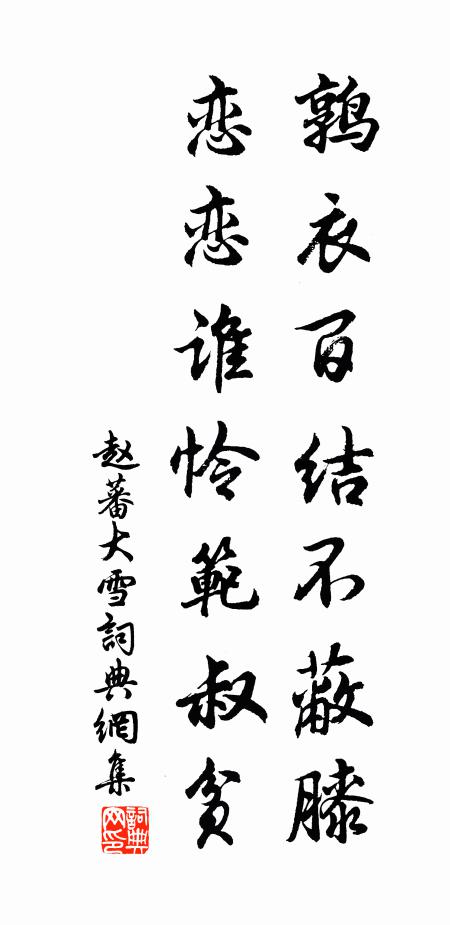 鹑衣百结不蔽膝
恋恋谁怜範叔贫
赵蕃大雪詞典網集
詞典网印